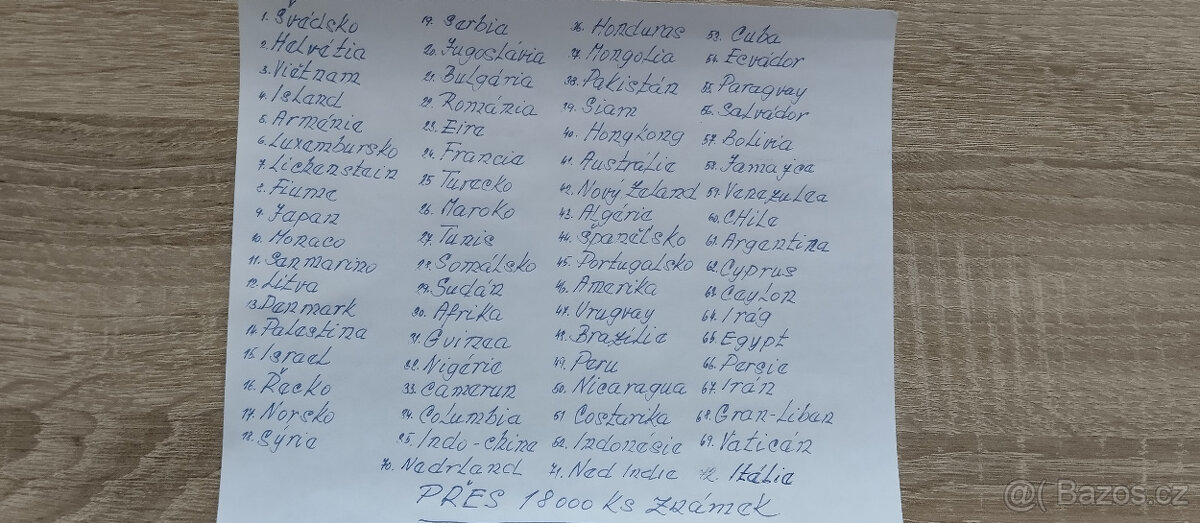 1. Švádsko
2. Helvétia
3. Viětnam
4. Island
5. Arménie
6. Luxambursko
7. Lichenstein
8. Fiume
9. Japan
10. Monaco
11. Sanmarino
12. Litva
13. Denmark
14. Palestina
15. Israel
16. Řecko
17. Norsko
18. Sýrie
19. Serbia
20. Jugoslávia
21. Bulgária
22. Románia
23. Eire
24. Francia
25. Turecko
26. Maroko
27. Tunis
28. Somálsko
29. Sudán
30. Afrika
31. Guinea
32. Nigérie
33. Camerun
34. Columbia
35. Indo-chine
36. Honduras
37. Mongolia
38. Pakistán
39. Siam
40. Hongkong
41. Austrálie
42. Nový Zeland
43. Algérie
44. Španělsko
45. Portugalsko
46. Amerika
47. Vruguay
48. Brazílie
49. Peru
50. Nicaragua
51. Costarika
52. Indonésie
53. Cuba
54. Ecvádor
55. Paraguay
56. Salvádor
57. Bolivia
58. Jamajca
59. Venezulea
60. CHile
61. Argentina
62. Cyprus
63. Ceylon
64. Irág
65. Egypt
66. Persie
67. Irán
68. Gran-Liban
69. Vaticán
70. Nedrland
71. Ned Indie
72. Itálie
PŘES 18000 Ks ZNÁMEK
@( Bazos.cz